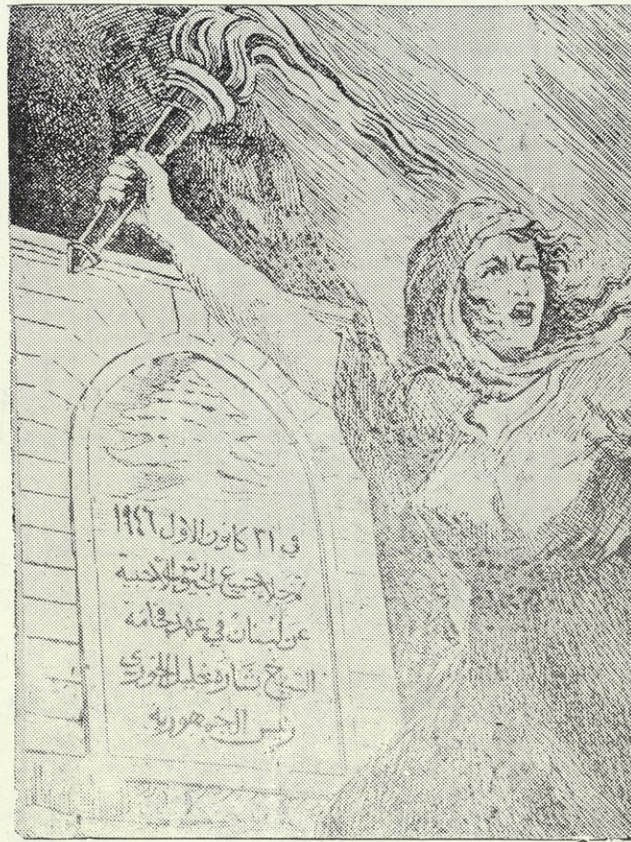 في ٣١ كانون الاول ١٩٤٦
تم جلاء جميع الجيوش الاجنبية
عن لبنان في عهد فخامة
الشيخ بشارة خليل الخوري
رئيس الجمهورية